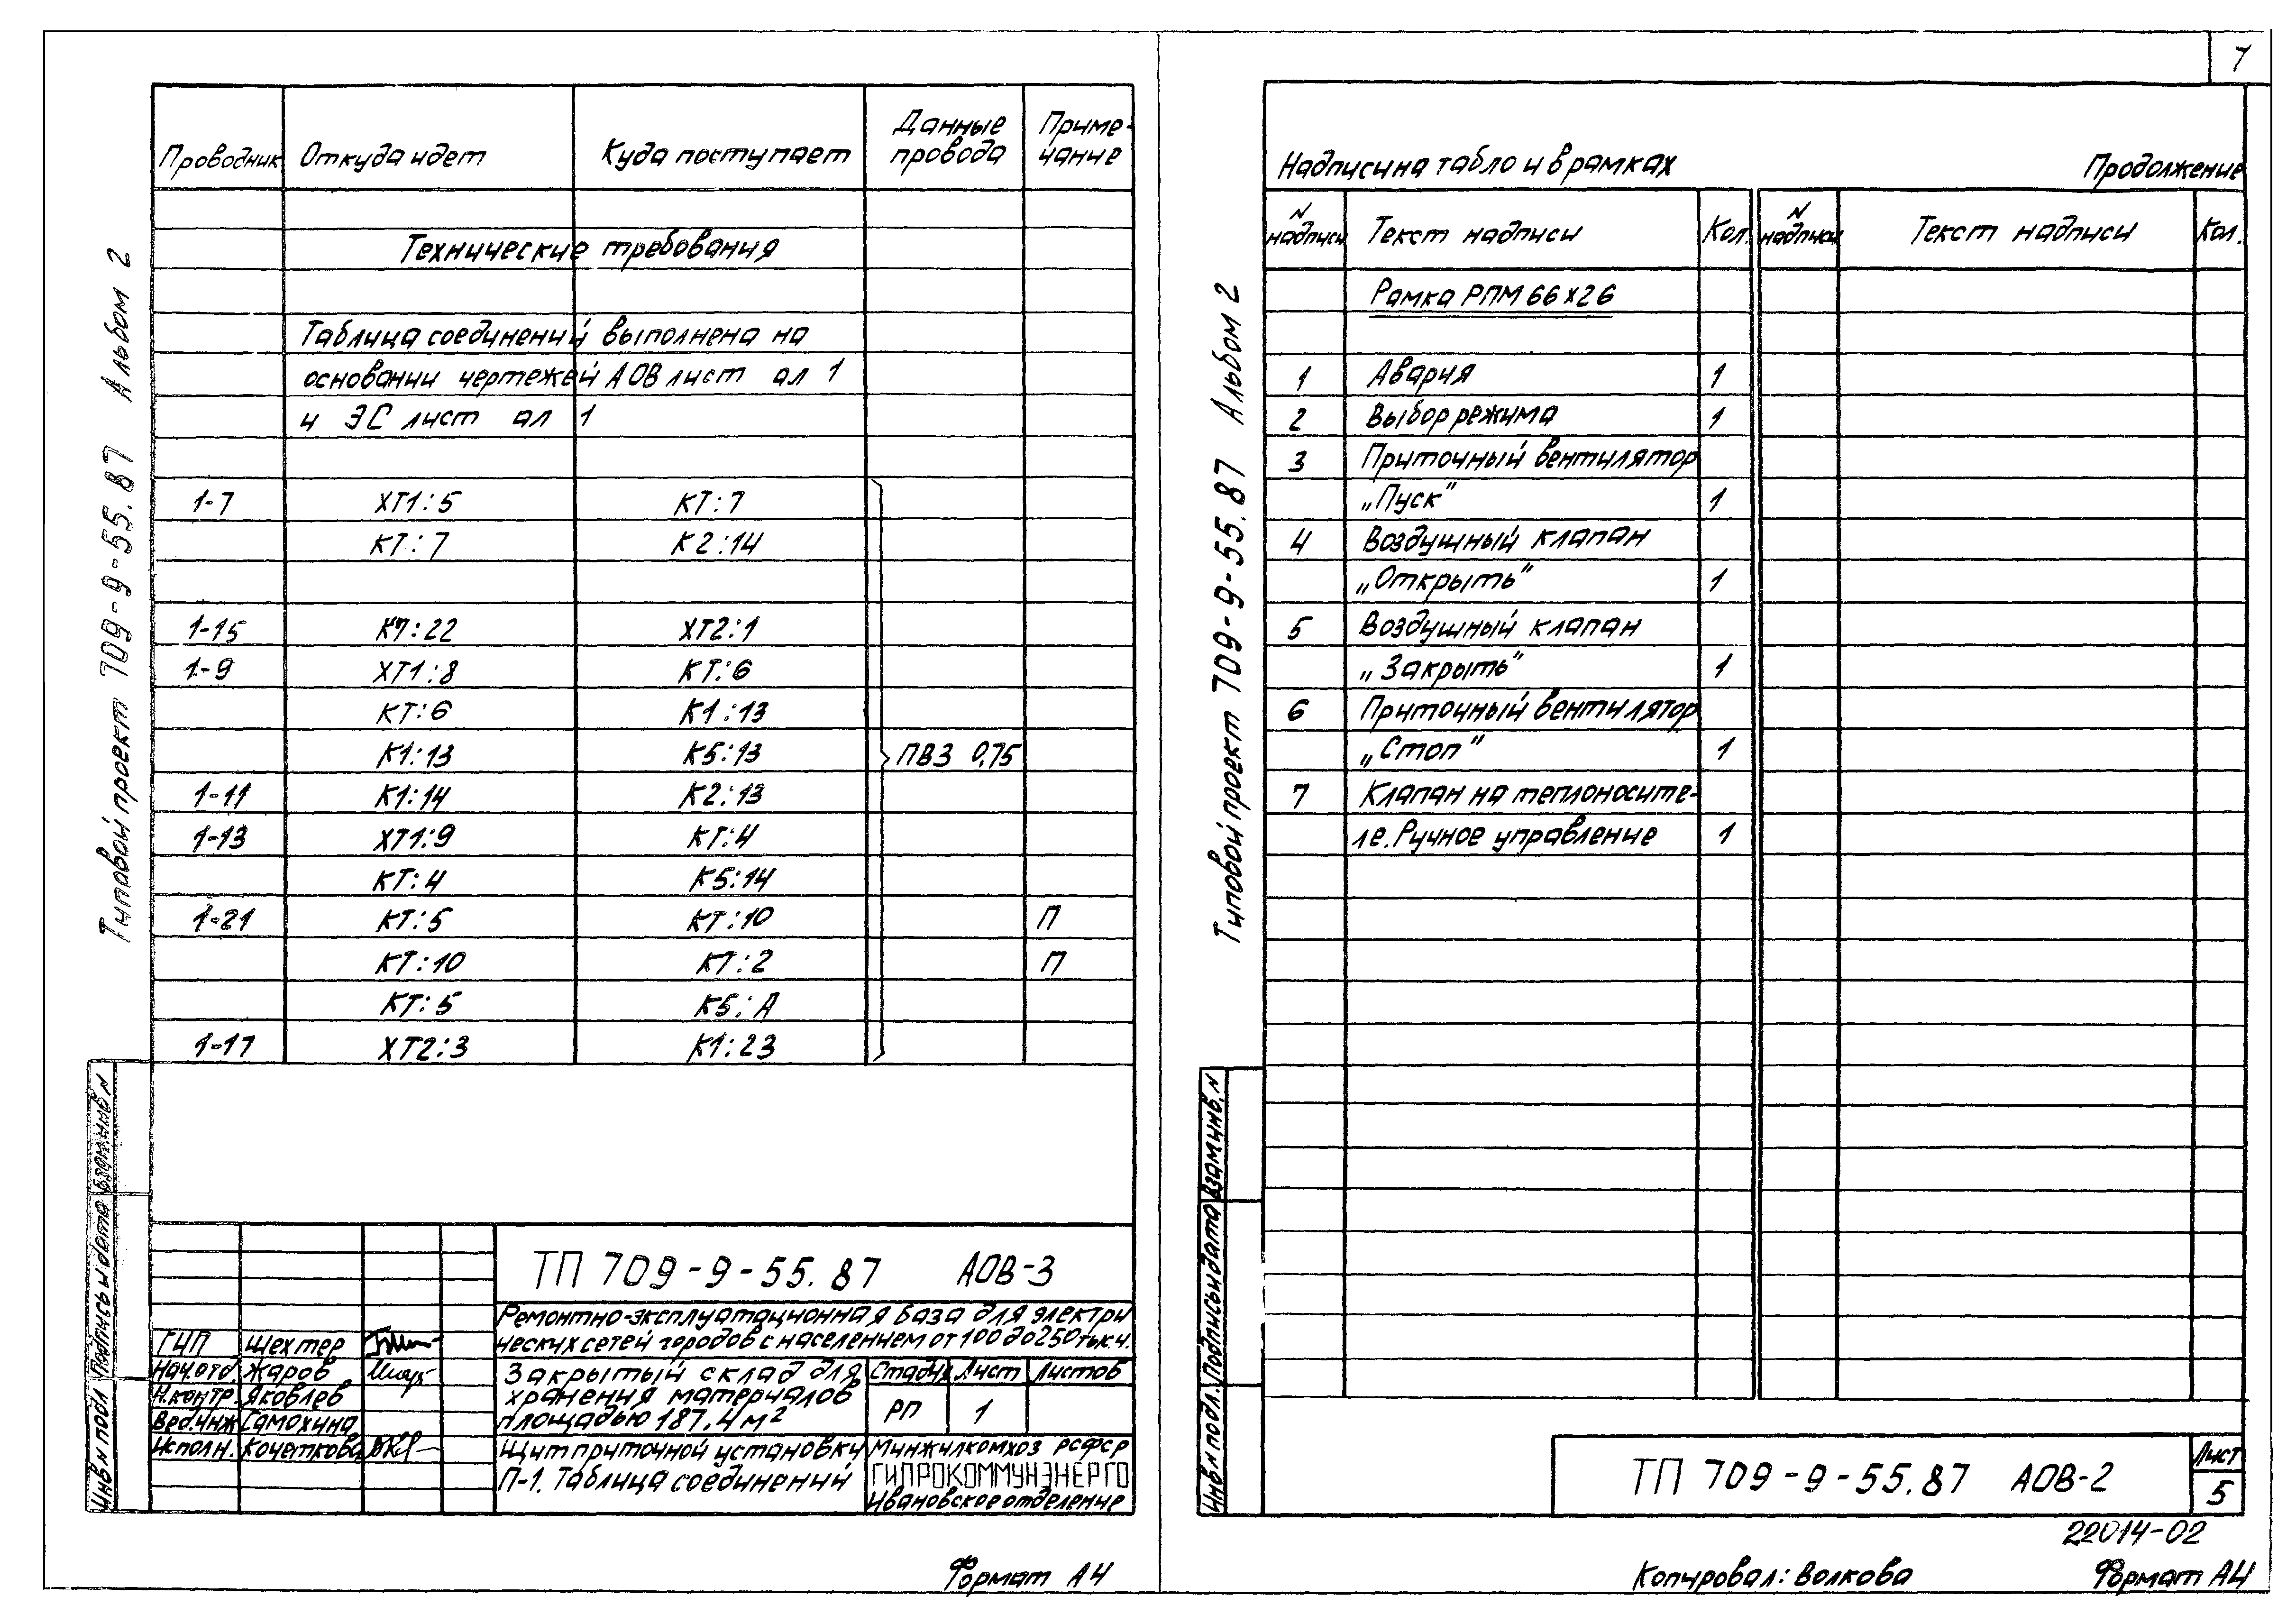 7
Типовой проект 709-9-55.87 Альбом 2
Проводник Откуда идет Куда поступает Данные провода Приме-чание
Технические требования
Таблица соединений выполнена на
основании чертежей АОВ лист ал 1
и ЭС лист ал 1
1-7 ХТ1:5 КТ:7
КТ:7 К2:14
1-15 К7:22 ХТ2:1
1-9 ХТ1:8 КТ:6
КТ:6 К1:13
К1:13 К5:13 ПВ3 0,75
1-11 К1:14 К2:13
1-13 ХТ1:9 КТ:4
КТ:4 К5:14
1-21 КТ:5 КТ:10 П
КТ:10 КТ:2 П
КТ:5 К5:А
1-17 ХТ2:3 К1:23
Инв.N подл Подпись и дата Взам.инв N
ТП 709-9-55.87 АОВ-3
Ремонтно-эксплуатационная база для электри
ческих сетей городов с населением от 100 до 250 тыс.ч.
ГИП Шехтер
Нач.отд. Жаров
Н.контр. Яковлев
Вед.инж Самохина
Исполн. Кочеткова
Закрытый склад для
хранения материалов
площадью 187,4 м2
Стадия Лист Листов
РП 1
Щит приточной установки
П-1. Таблица соединений
Минжилкомхоз РСФСР
ГИПРОКОММУНЭНЕРГО
Ивановское отделение
Формат А4
Типовой проект 709-9-55.87 Альбом 2
Надписи на табло и в рамках Продолжение
N надписи Текст надписи Кол. N надписи Текст надписи Кол.
Рамка РПМ 66х26
1 Авария 1
2 Выбор режима 1
3 Приточный вентилятор
„Пуск" 1
4 Воздушный клапан
„Открыть" 1
5 Воздушный клапан
„Закрыть" 1
6 Приточный вентилятор
„Стоп" 1
7 Клапан на теплоносите-
ле. Ручное управление 1
Инв.N подл. Подпись и дата Взам.инв.N
ТП 709-9-55.87 АОВ-2
Лист
5
22014-02
Копировал: Волкова Формат А4